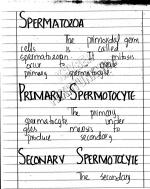 SPERMATOZOA
The primordial germ
cells is called
spermatozoan. It mitosis
occur to create
primary spermatocyte.
PRIMARY SPERMOTOCYTE
The primary
spermatocyte under
goes meiosis to
produce secondary
SECONARY SPERMOTOCYTE
The secondary